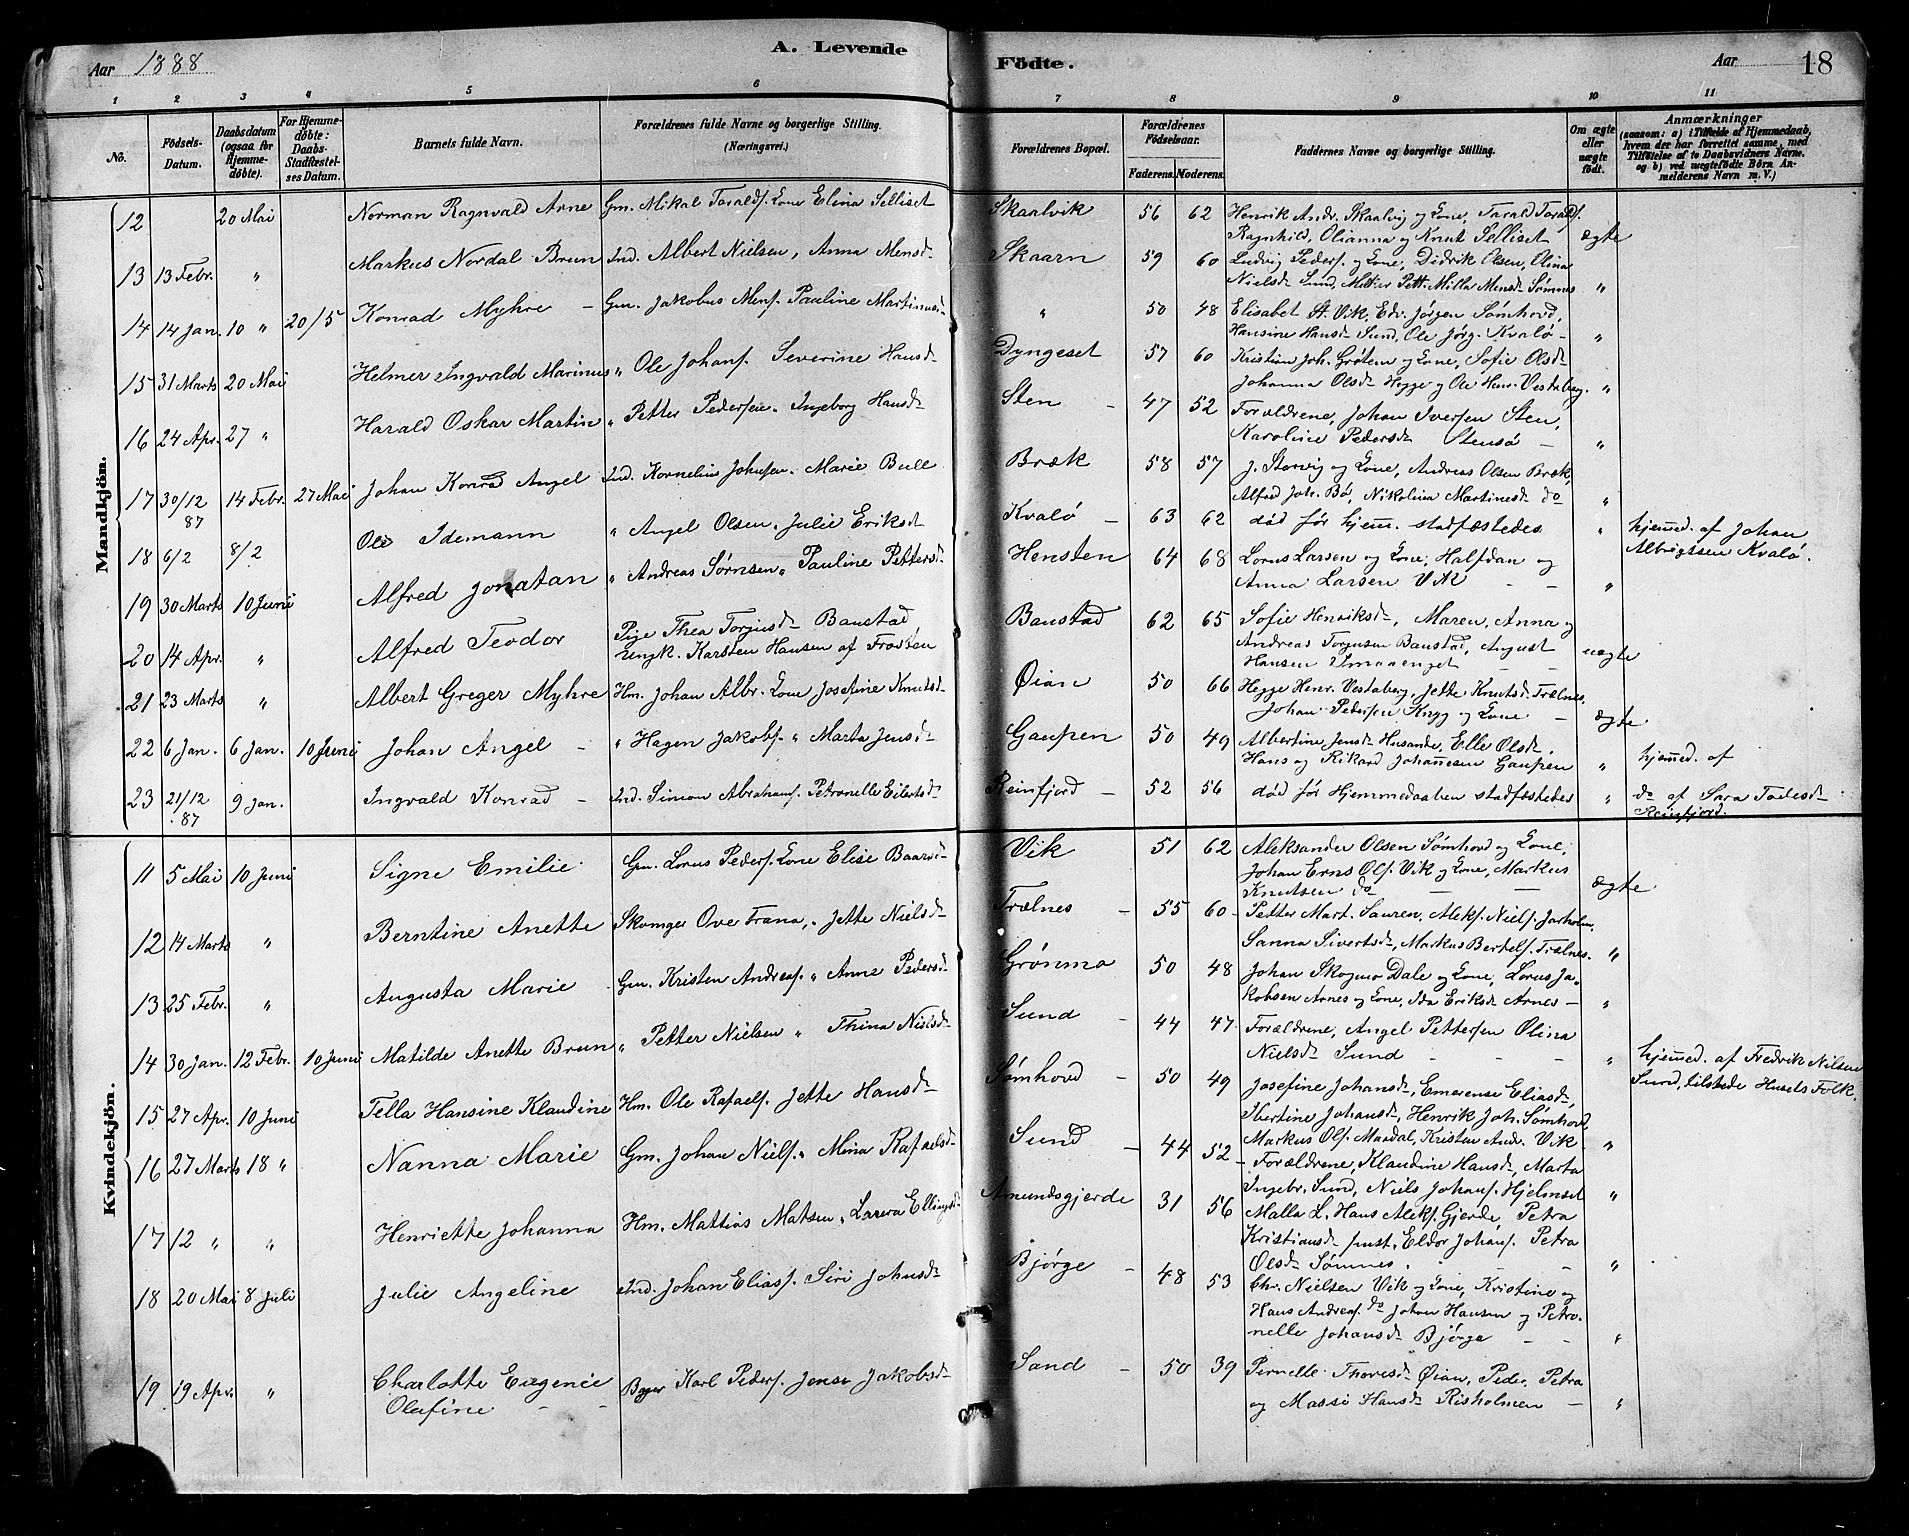 Aar 1888
A. Levende Födte.
Aar 18
1 2 3 4 5 6 7 8 9 10 11
No.
Födsels-Datum.
Daabsdatum (ogsaa for Hjemmedöbte).
For Hjemmedöbte: Daabs-Stadfæstelses Datum.
Barnets fulde Navn.
Forældrenes fulde Navne og borgerlige Stilling. (Næringsvei.)
Forældrenes Bopæl.
Forældrenes Födselsaar. Faderens. Moderens.
Faddernes Navne og borgerlige Stilling.
Om ægte eller uægte födt.
Anmærkninger (saasom: a) i Tilfælde af Hjemmedaab, hvem der har forrettet samme, med Tilföielse af to Daabsvidners Navne, og b) ved uægtefödte Börn Anmelderens Navn m. V.)
Mandkjön.
12 20 Mai Norman Ragnvald Arne Gm. Mikal Taraldf. Kone Elina Selliset Skaalvik 56 62 Henrik Andr. Skaalvig og Kone, Tarald Taraldf.
Ragnhild, Olianna og Knut Selliset ægte
13 13 Febr. " Markus Nordal Brun Ind. Albert Nielsen, Anna Mensd Skaarn 59 60 Ludvig Peders. og Kone, Didrik Olsen, Olina
Nielsd Sund, Pett. Milla Mensd Sømnes "
14 14 Jan. 10 " 20/5 Konrad Myhre - Gm. Jakobus Mens. Pauline Martinusd " 50 48 Elisabet St. Vik, Edv. Jørgen Sømhovd,
Hansine Hansd Sund, Ole Jörg. Kvalö - "
15 31 Marts 20 Mai Helmer Ingvald Marinus " Ole Johanf. Severine Hansd Dyngeset 57 60 Kristian Joh. Grøtem og Kone, Sofie Olsd
Johanna Olsd Hegge og Ole Henr. Vestaberg. "
16 24 Apr. 27 " Harald Oskar Martin " Petter Pedersen. Ingeborg Hansd Sten - 47 52 Forældrene, Johan Iversen Sten,
Karoline Pedersd Stensø - "
17 30/12 87 14 Febr. 27 Mai Johan Konrad Angel Ind. Kornelius Johnsen. Marie Bull Bræk 58 57 J. Storvig og Kone, Andreas Olsen Bræk,
Alfred Joh. Bø, Nikolina Martinesd do "
18 6/2 8/2 Ole Idemann " Angel Olsen. Julie Eriksd Kvalø - 63 62 død før hjem. stadfæstedes " hjemmed. af Johan
Albrigtsen Kvalø.
19 30 Marts 10 Juni Alfred Jonatan " Andreas Sørnsen " Pauline Pettersd Hensten 64 68 Lorns Larsen og Kone, Halfdan og
Anna Larsen Vik - - "
20 14 Apr. " Alfred Teodor Pige Thea Torgusd Banstad
Ungk. Karsten Hansen af Frosten Banstad 62 65 Sofie Henriksd, Maren, Anna og
Andreas Torgusen Banstad, August
Hansen Smaaenget - - uægte
21 23 Marts " Albert Greger Myhre Hm. Johan Albr. Kone Josefine Knutsd Øian 50 66 Hegge Henr. Vestaberg, Jette Knutsd Trælnes,
Johan Pedersen Kngg og Kone - ægte
22 6 Jan. 6 Jan. 10 Juni Johan Angel - " Hagen Jakobf. " Marta Jensd Gaupen 50 49 Albertine Jensd Husande, Elle Olsd.
Hans og Rikard Johannesen Gaupen " hjemmed. af
23 21/12 87 9 Jan. Ingvald Konrad - Ind. Simon Abrahamf. Petronelle Eilertsd Reinfjord - 52 56 død før Hjemmedaaben stadfæstedes " do af Sara Todesd
Reinfjord.
Kvindekjön.
11 5 Mai 10 Juni Signe Emilie Gm. Lorns Pedersf. Kone Elise Baardsd Vik 51 62 Aleksander Olsen Sømhovd og Kone,
Johan Erns Olf. Vik og Kone, Markus
Knutsen do - - ægte
12 14 Marts " Berntine Anette Skomger Ove Frana, " Jette Nielsd Trælnes - 55 60 - Petter Mart. Sauren, Aleks. Nielf. Jarholm,
Sanna Sivertsd, Markus Bertelf. Trælnes. "
13 25 Febr. " Augusta Marie Gm. Kristen Andreasf. " Anne Pedersd Grønmo 50 48 Johan Skogmo Dale og Kone, Lorns Ja-
kobsen Arnes og Kone, Ida Eriksd Arnes - "
14 30 Jan. 12 Febr. 10 Juni Matilde Anette Brun " Petter Nielsen " Thina Nielsd Sund - 44 47. Forældrene, Angel Pettersen Olina
Nielsd Sund - - - " hjemmed. af Fredrik Nilsen
Sund, tilstede Husets Folk.
15 27 Apr. 10 Juni Tella Hansine Klaudine Hm. Ole Rafaelf. Jette Hansd Sømhovd - 50 49 Josefine Johansd, Emerense Eliasd,
Ibertine Johansd, Henrik Joh. Sømhovd,
Markus Olf. Maadal, Kristen And. Vik "
16 27 Marts 18 " Nanna Marie Gm. Johan Nielf. " Mina Rafaelsd Sund - 44 52 - Forældrene, Klaudine Hansd, Marta
Ingebr. Sund, Niels Johanf. Hjelmset "
17 12 " " Henriette Johanna Hm. Mattias Matsen " Larva Ellingsd Amundsgjerde 31 56 Malla L. Hans Aleks. Gjerde, Petra
Kristiansd, Eldor Johanf. Petra
Olsd Sømnes. - - "
18 20 Mai 8 Juli Julie Angeline Ind. Johan Eliasf. Siri Johnsd Bjørge - 48 53 Chr. Nielsen Vik og Kone, Kristine og
Hans Andreasf. do Johan Hansen og Petro-
nelle Johansd Bjørge - - "
19 19 Apr. " Charlotte Eugenie
Olafine - - Karl Pedersf. Jensa Jakobsd Sand - 50 39 Pernelle Thoresd Øian, Peder, Petra
og Massi Hansd Risholmen - "